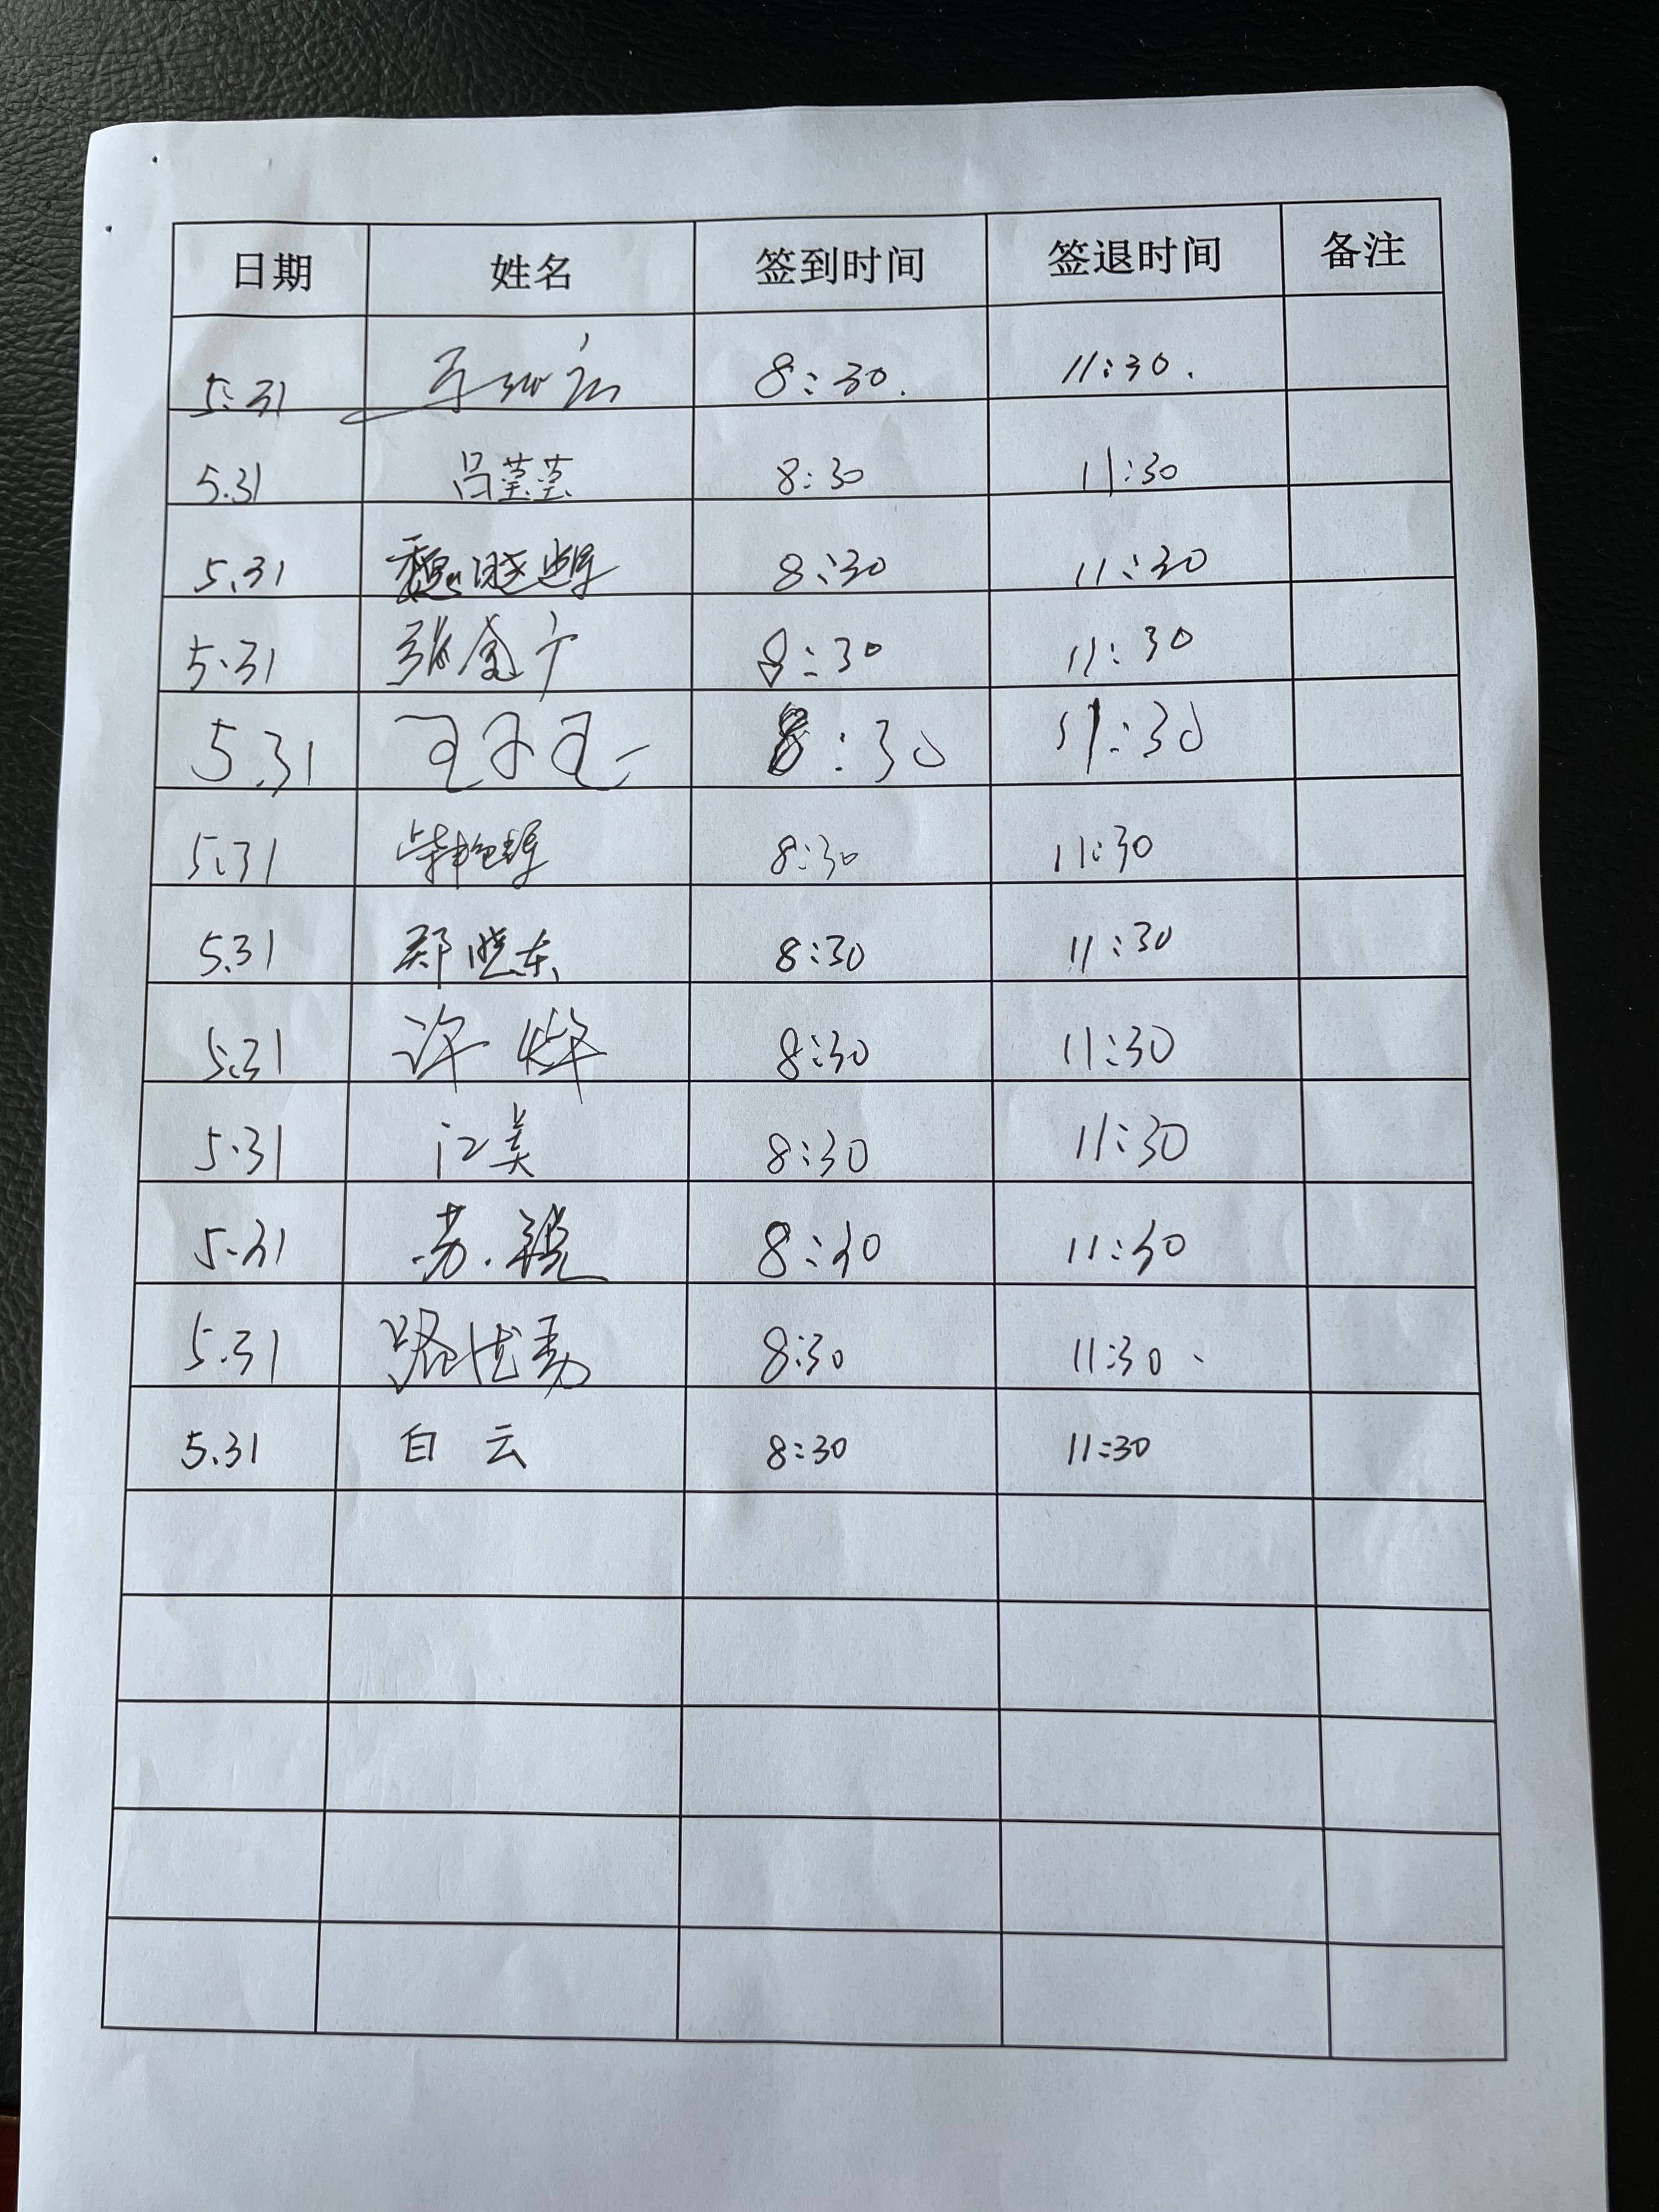 日期 姓名 签到时间 签退时间 备注
5.31 8:30. 11:30.
5.31 吕茎茎 8:30 11:30
5.31 魏晓辉 8:30 11:30
5.31 张金广 8:30 11:30
5.31 8:30 11:30
5.31 8:30 11:30
5.31 郑晓东 8:30 11:30
5.31 许烨 8:30 11:30
5.31 江美 8:30 11:30
5.31 苏锐 8:30 11:30
5.31 8:30 11:30
5.31 白云 8:30 11:30